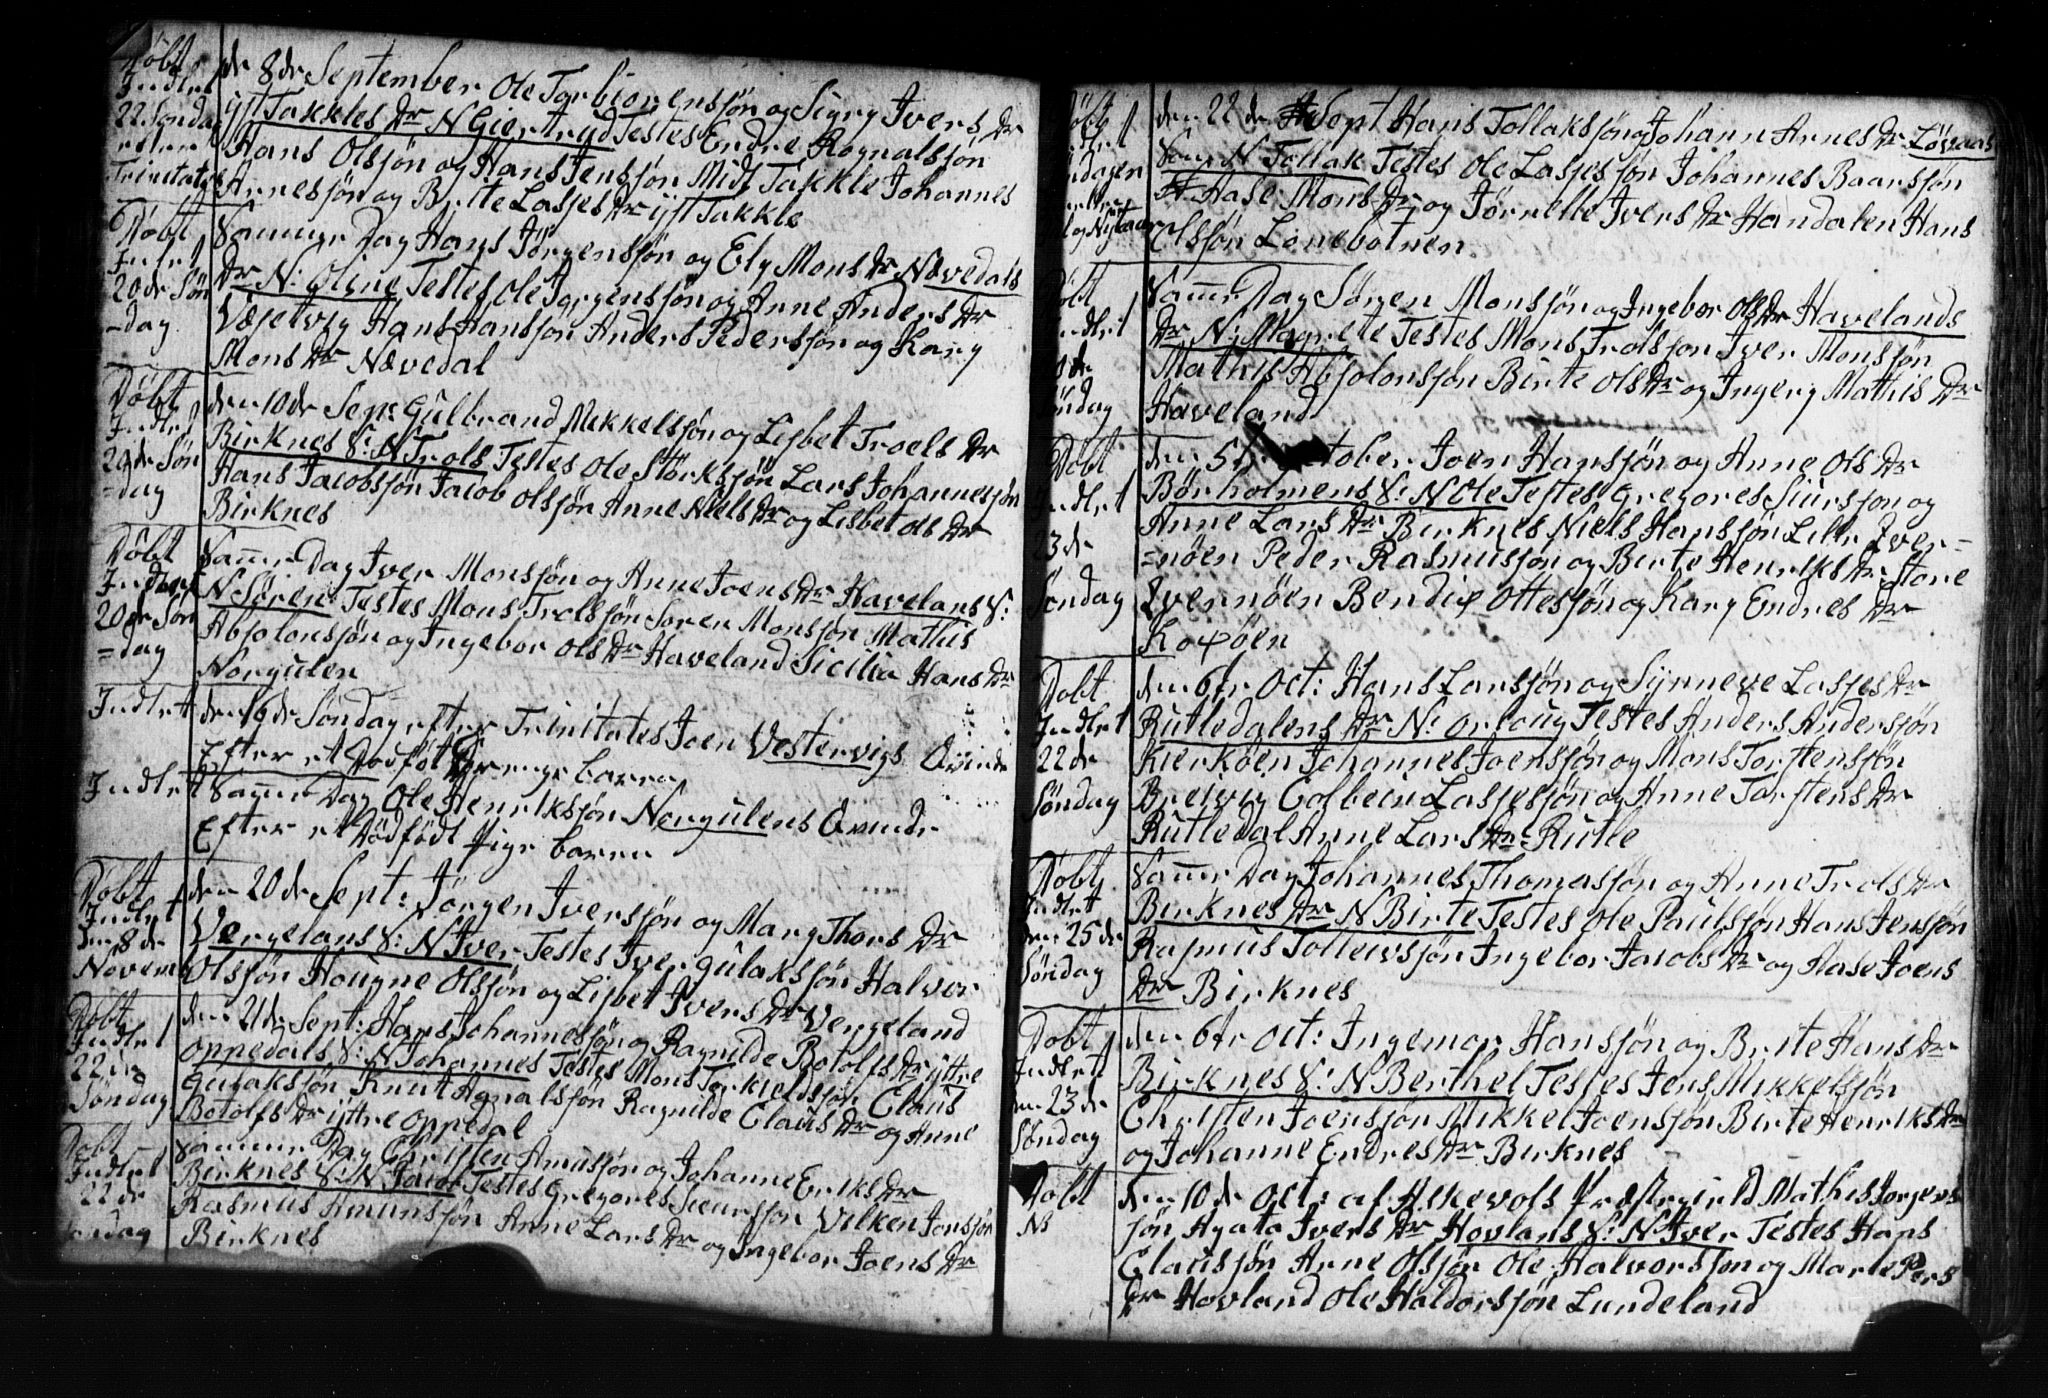 Döbt
Indlet
22 Søndag
efter
Trinitatis
de 8de September Ole Torbiørensøn og Sigrj Ivers Dr
ijst Takkles Dr N Giertrud Testes Endre Rognalsjön
Hans Olsjön og Hans Jensjön Midt Takkle Johannes
Arnesjön og Byrte Lasses Dr ijst Takkle
Döbt
Indlet
20de Søn
-dag
Samme Dag Hans Jörgensjön og Ely Mons Dr Nævedals
Dr N: Oline Testes Ole Jörgensjön og Anne Anders Dr
Hans Hansjön Anders Pedersjön og Kary
Mons Dr Nævedal
Döbt
Indlet
20de Søn
=dag
den 10de Sept Gulbrand Mikkelsjön og Lisbet Troels Dr
Birknes S: N Trols Testes Ole Störksjön Lars Johannesjön
Hans Jacobsjön Jacob Olsjön Anne Niels Dr og Lisbet Ols Dr
Birknes
Döbt
Indlet
20de Søn
=dag
Samme Dag Iver Monsjön og Anne Joens Dr Havelans S:
N Søren Testes Mons Trolsjön Søren Monsjön Mathis
Absolonsjön og Ingebor Ols Dr Haveland Sicilia Hans Dr
Norgulen
Indlet
den 16de Söndag efter Trinitates Joen Vestervigs Qvinde
Efter et Dödföt Drenge barn
Indlet
Samme Dag Ole Henriksjön Norgulens Qvinde
Efter et Dödfödt Pige barn
Döbt
Indlet
den 8de
Novem
den 20de Sept: Jörgen Iversjön og Mary Thors Dr
Vergelans S: N Iver Testes Iver Gulaksjön Halvor
Olsjön Hougne Olsjön og Lisbet Ivers Dr Vergeland
Döbt
Indlet
22de
Söndag
den 21de Sept: Hans Johannesjön og Ragnilde Botolfs Dr ijttre
Oppedals S: N Johannes Testes Mons Torkieldsjön Claus
Gulaksjön Knut Agnalsjön Ragnilde Claus Dr og Anne
Botolfs Dr ijttre Oppedal
Döbt
Indlet
22de
Samme Dag Christen Amusjön og Johanne Eriks Dr
Birknes S: N Jacob Testes Gregores Siursjon Vilken Jonsjön
Rasmus Amunsjön Anne Lars Dr og Ingebor Joens Dr
Birknes
Döbt
den 22de Sept Hans Tollaksjön og Johanna Arnes Dr Lövaas
Sön N Tollak Testes Ole Lasses sjön Johannes Baarsjön
Aase Mons Dr og Jörnette Ivers Dr Handalen Hans
Olsjön Lonebotnen
Döbt
Indlet
Söndag
Samme Dag Sören Monsjön og Ingebor Ols Dr Havelands
Dr N: Magrete Testes Mons Trolsjon Iver Monsjön
Mathis Absolonsjön Birte Ols Dr og Ingery Mathis Dr
Haveland
Döbt
Indlet
23de
Söndag
den 5 October Joen Hansjön og Anne Ols Dr
Börholmens S: N Ole Testes Gregores Siursjon og
Anne Lars Dr Birknes Niels Hansjön Lille Qver=
=nöen Peder Rasmussjön og Berte Henriks Dr Store
Qvernöen Bendix Ottesjön og Kary Endres Dr
Koxöen
Döbt
Indlet
22de
Söndag
den 6te Oct: Hans Larsjön og Synneve Lasses Dr
Rutledalens Dr N: Orloug Testes Anders Andersjön
Kierköen Johannes Joensjön og Mons Torstensjön
Breivig Colbein Lassesjön og Anne Torstens Dr
Rutledal Anne Lars Dr Rutle
Döbt
Indlet
den 25de
Söndag
Samme Dag Johannes Thomasjön og Anne Trols Dr
Birknes Dr N Birte Testes Ole Paulsjön Hans Jensjön
Rasmus Tolleivsjön Ingebor Jacobs Dr og Aase Joens
Dr Birknes
Döbt
Indlet
den 23de
Söndag
den 6te Oct: Ingemor Hansjön og Brite Hans Dr
Birknes S: N Berthel Testes Jens Mikkelsjön
Christen Joensjön Mikkel Joensjön Birte Henriks Dr
og Johanne Endres Dr Birknes
Döbt
Ns
den 10de Oct: af Askevols Præstegield Mathis Jörgens
sjön Agata Ivers Dr Hovlans S: N Iver Testes Hans
Clausjön Arne Olsjön Ole Halvorsjon og Marte Pers
Dr Hovland Ole Haldorsjön Lundeland